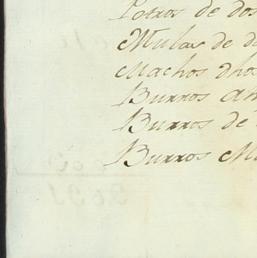 Potros de dos
Mulas de d
Machos dhos
Burros an
Burros de
Burros Ma